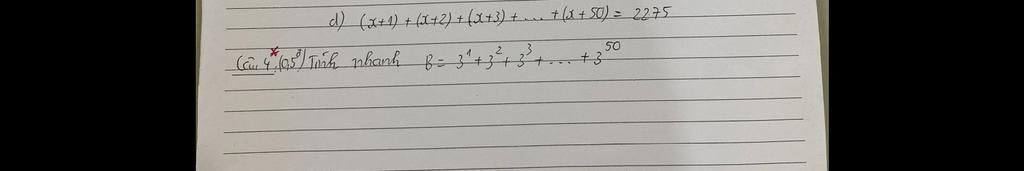 d) (x+1) + (x+2) + (x+3) + ... + (x + 50) = 2275
Câu 4*: (0,5đ) Tính nhanh B = 3¹ + 3² + 3³ + ... + 3⁵⁰